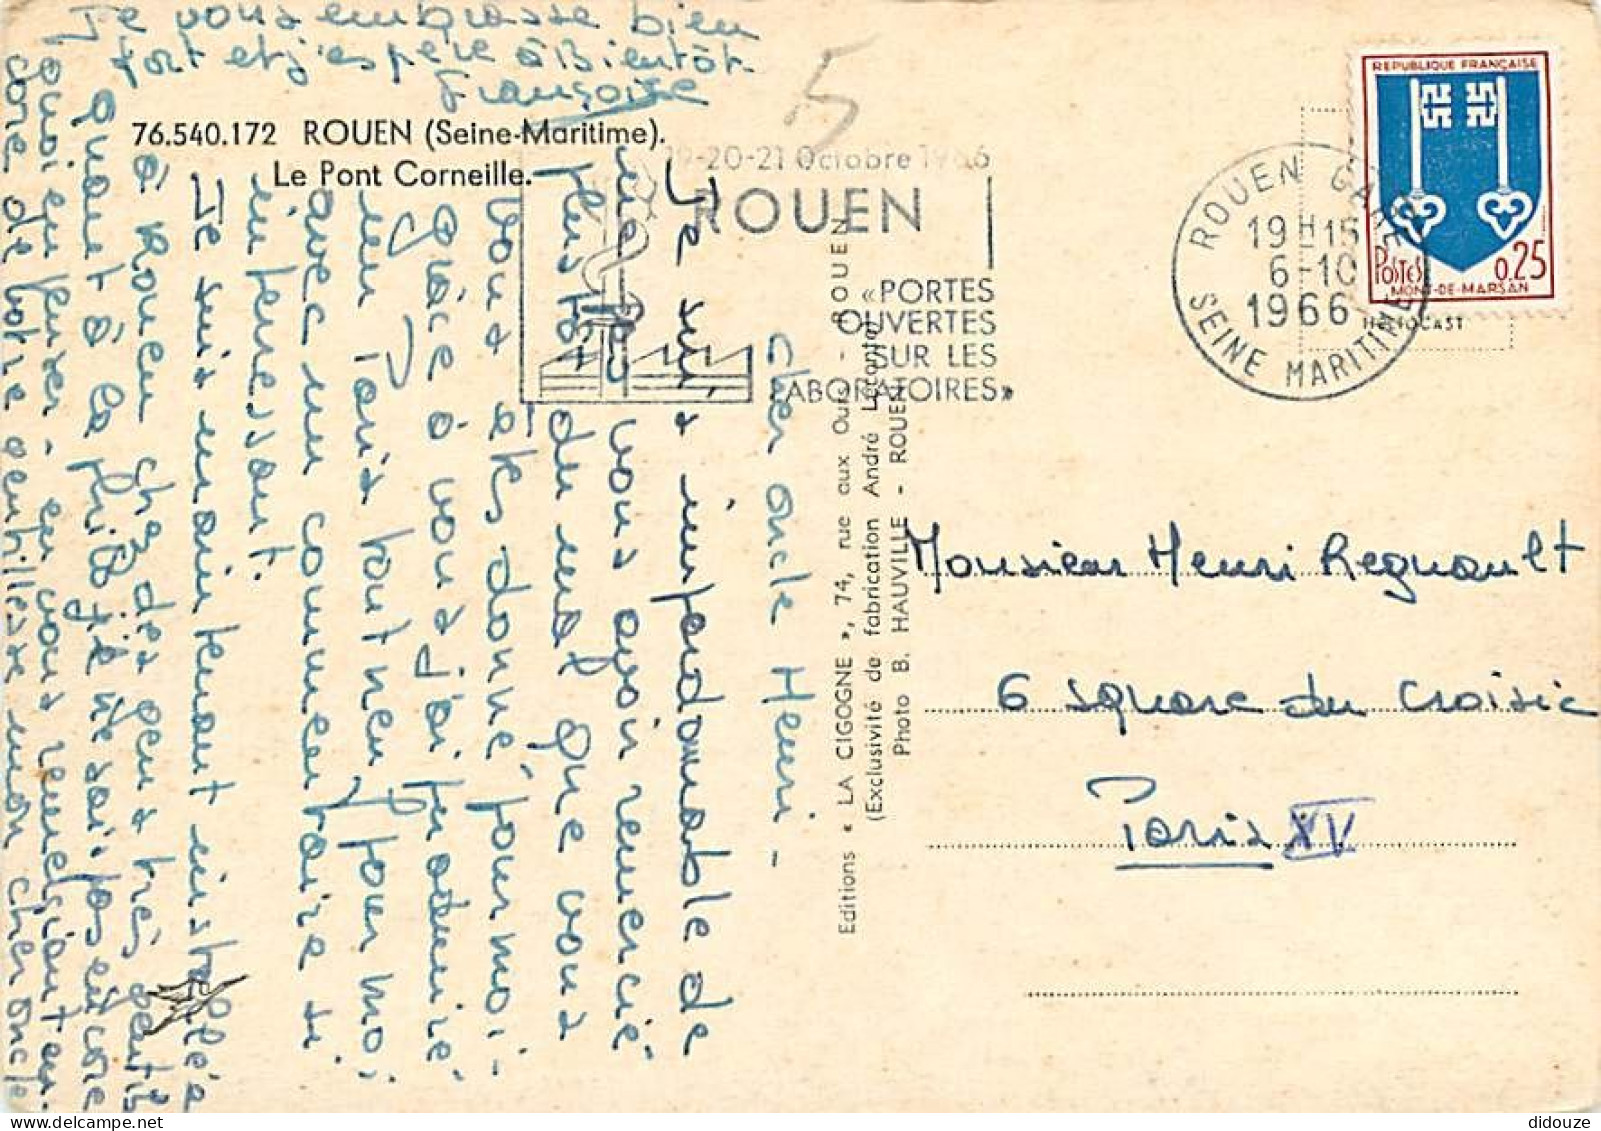 76.540.172 ROUEN (Seine-Maritime).
Le Pont Corneille.
19-20-21 Octobre 1966
ROUEN
«PORTES
OUVERTES
SUR LES
LABORATOIRES»
ROUEN GARE
19H15
6-10
1966
SEINE MARITIME
REPUBLIQUE FRANÇAISE
POSTES
0.25
MONT-DE-MARSAN
HELIOCAST
5
Editions « LA CIGOGNE », 74, rue aux Ours - ROUEN
(Exclusivité de fabrication André Leconte)
Photo B. HAUVILLE - ROUEN
Monsieur Henri Regnault
6 square du Croisic
Paris XV
Cher oncle Henri -
Je suis impardonnable de
ne pas vous avoir remercié
plus tôt du mot que vous
vous êtes donné, pour moi -
grâce à vous j'ai
un Paris tout neuf, pour moi,
avec un commentaire si
intéressant.
Je suis maintenant installée
à Rouen chez des gens très gentils
Quant à la philo je ne sais pas encore
quoi en penser - en vous remerciant en-
core de votre gentillesse mon cher oncle
Je vous embrasse bien
fort et j'espère à Bientôt
Françoise
didouze